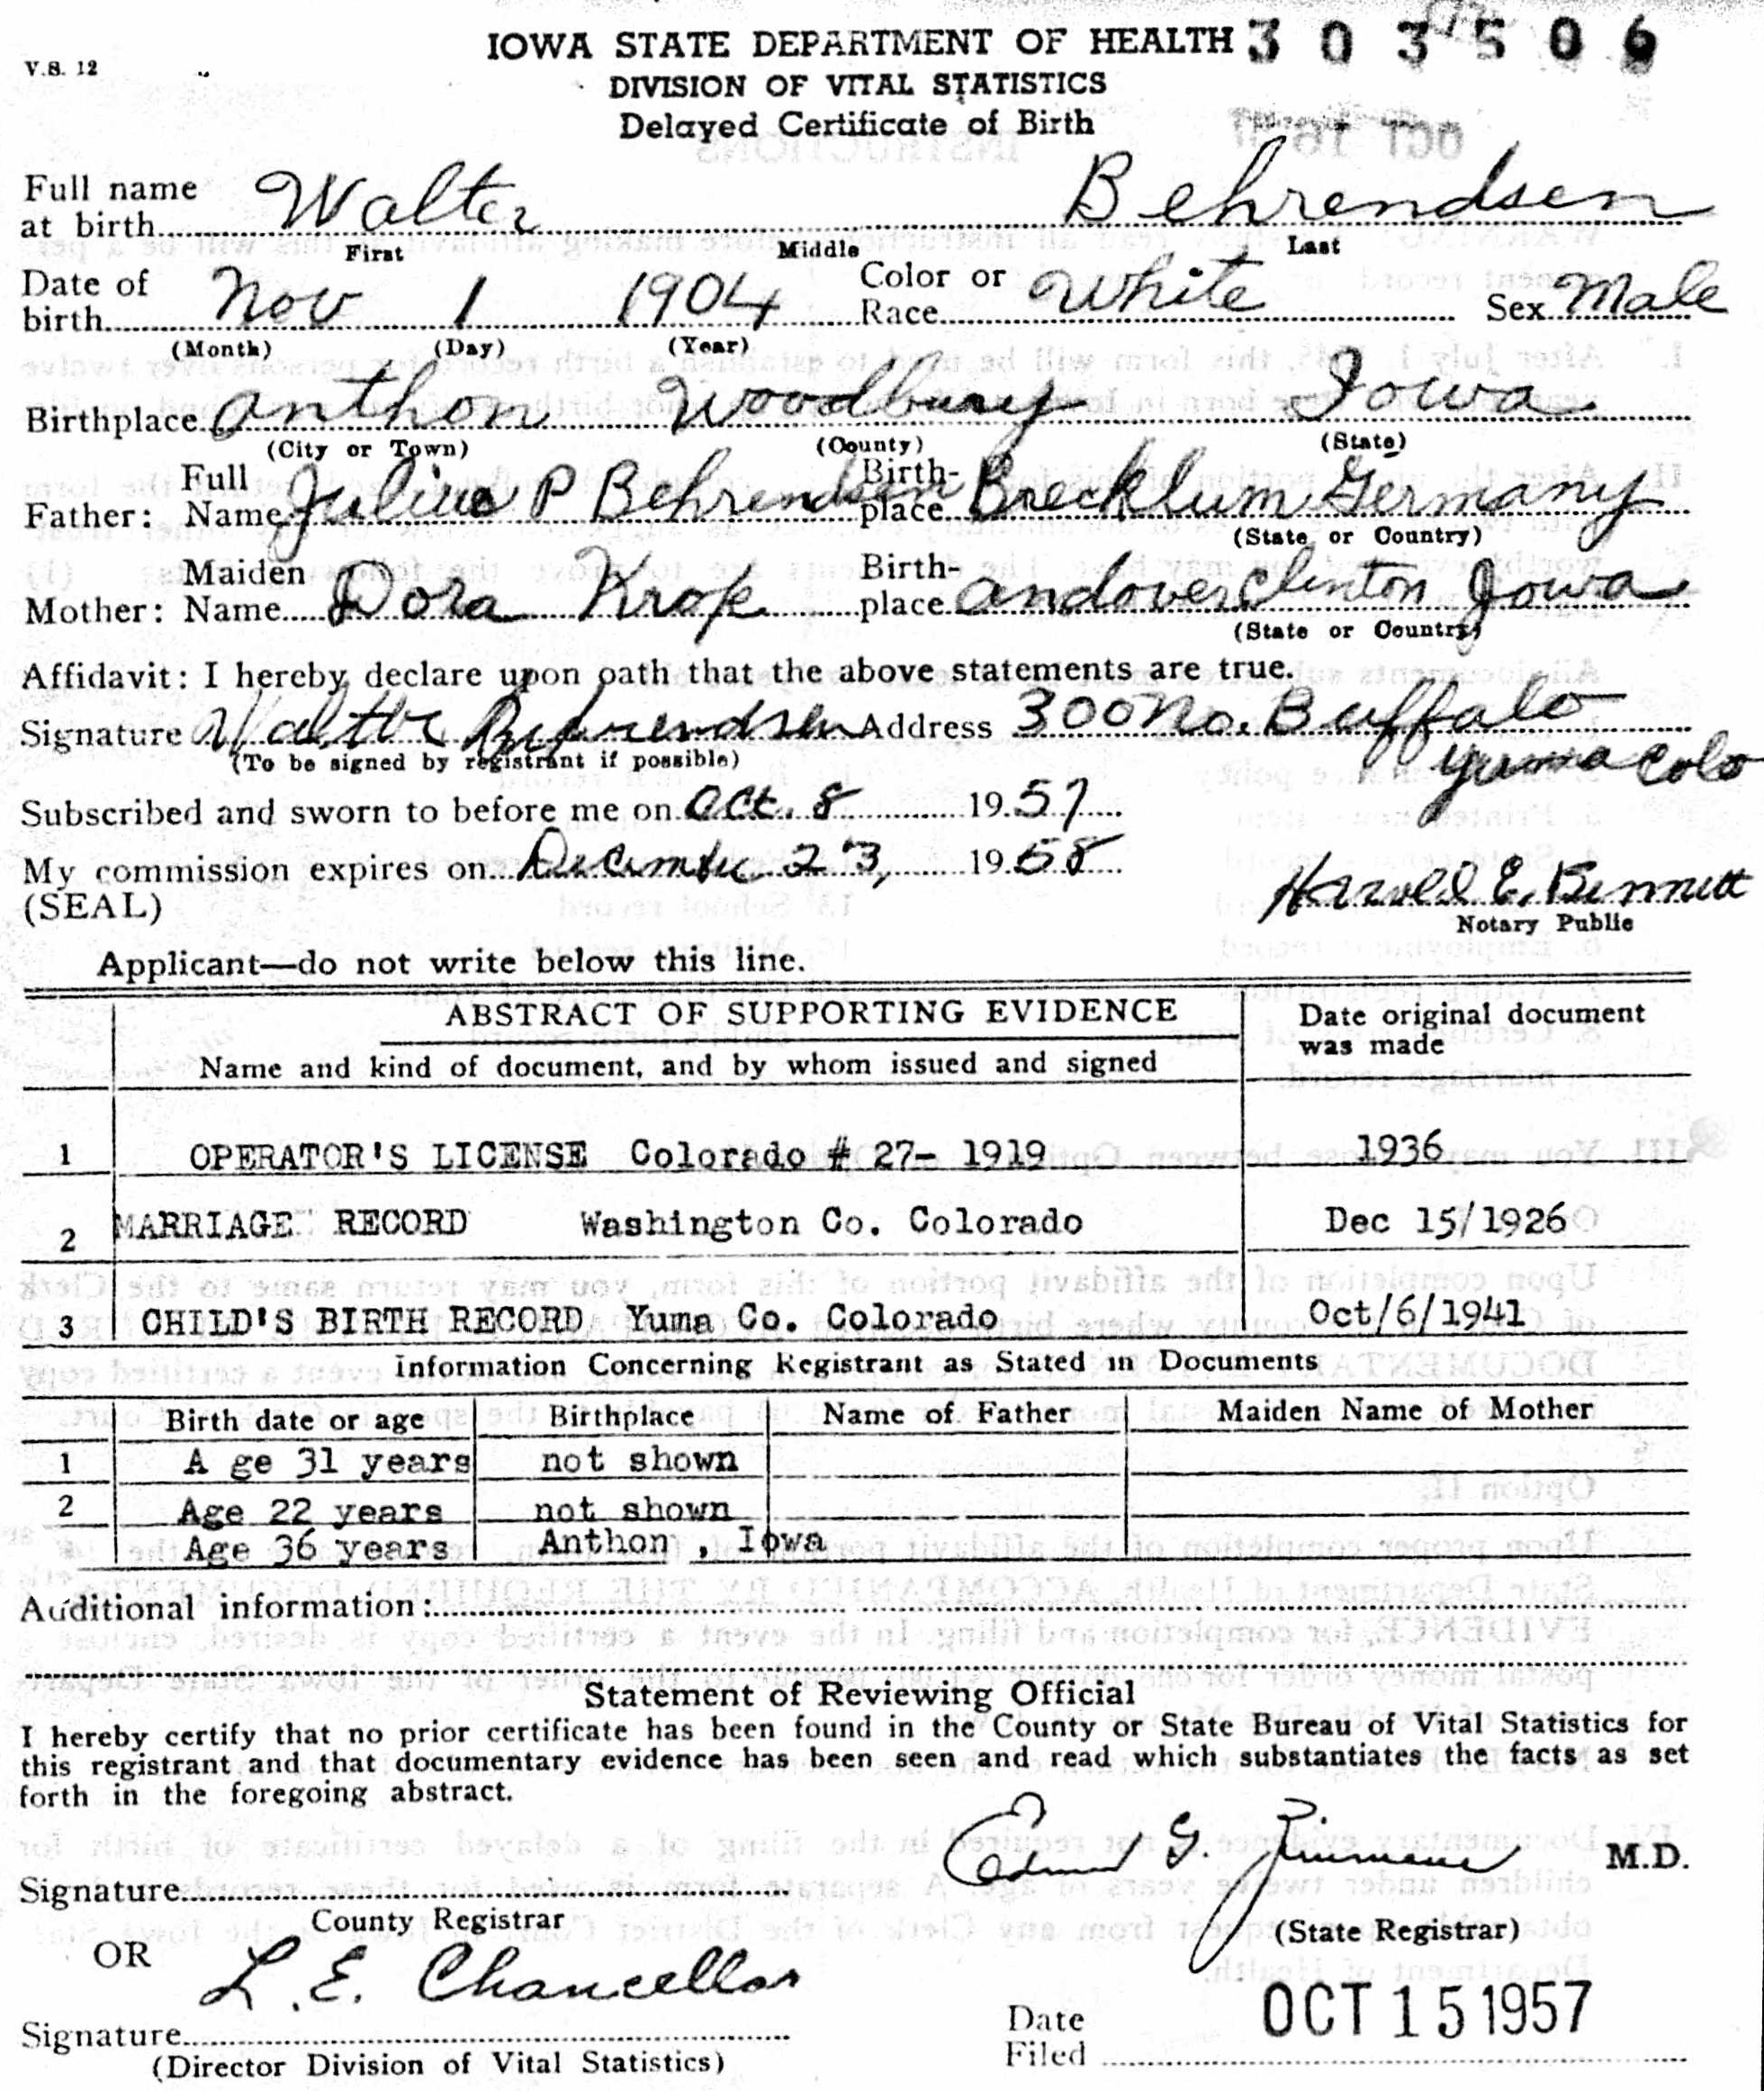 V.S. 12
IOWA STATE DEPARTMENT OF HEALTH 303506
DIVISION OF VITAL STATISTICS
Delayed Certificate of Birth
Full name at birth Walter Behrendsen
First Middle Last
Date of birth Nov 1 1904 Color or Race White Sex Male
(Month) (Day) (Year)
Birthplace Anthon Woodbury Iowa
(City or Town) (County) (State)
Father: Full Name Julius P Behrendsen Birth-place Brecklum Germany
(State or Country)
Mother: Maiden Name Dora Krop Birth-place Andover Clinton Iowa
(State or Country)
Affidavit: I hereby declare upon oath that the above statements are true.
Signature Walter Behrendsen Address 300 No. Buffalo
(To be signed by registrant if possible) Yuma Colo
Subscribed and sworn to before me on Oct. 8 1957
My commission expires on December 23, 1958
(SEAL) Harold E. Bennett
Notary Public
Applicant—do not write below this line.
ABSTRACT OF SUPPORTING EVIDENCE Date original document was made
Name and kind of document, and by whom issued and signed
1 OPERATOR'S LICENSE Colorado # 27- 1919 1936
2 MARRIAGE RECORD Washington Co. Colorado Dec 15/1926
3 CHILD'S BIRTH RECORD Yuma Co. Colorado Oct/6/1941
Information Concerning Registrant as Stated in Documents
Birth date or age Birthplace Name of Father Maiden Name of Mother
1 A ge 31 years not shown
2 Age 22 years not shown
Age 36 years Anthon , Iowa
Additional information:
Statement of Reviewing Official
I hereby certify that no prior certificate has been found in the County or State Bureau of Vital Statistics for
this registrant and that documentary evidence has been seen and read which substantiates the facts as set
forth in the foregoing abstract.
G. M.D.
Signature
County Registrar (State Registrar)
OR L. E. Chancellor
Signature
(Director Division of Vital Statistics)
Date Filed OCT 15 1957